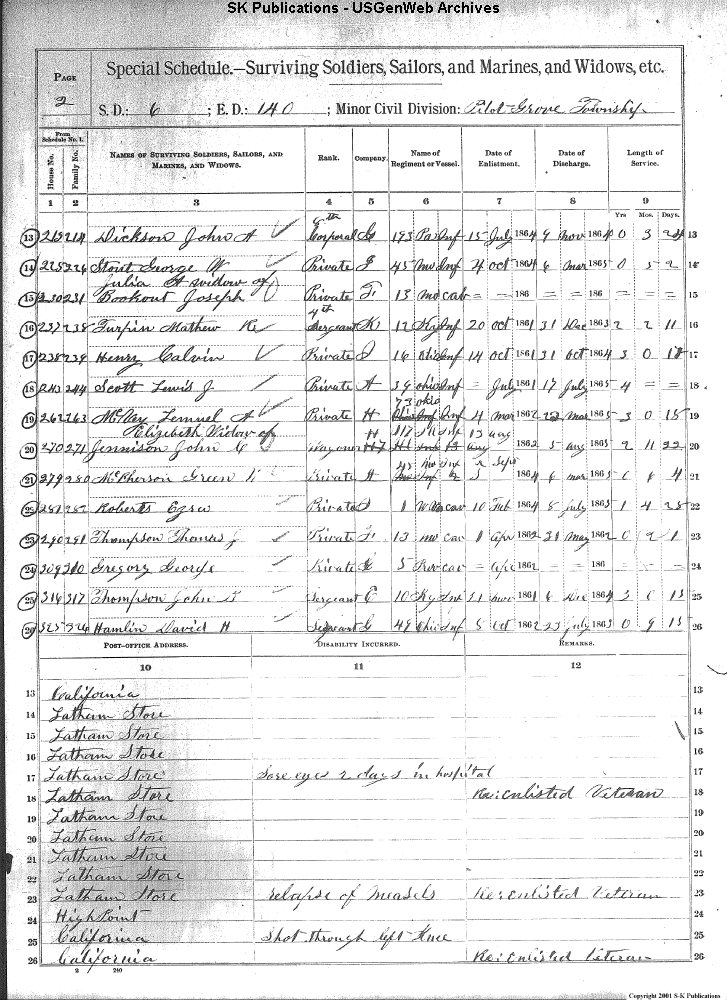 SK Publications - USGenWeb Archives
PAGE 2
Special Schedule.—Surviving Soldiers, Sailors, and Marines, and Widows, etc.
S.D.: 6 ; E.D.: 140 ; Minor Civil Division: Pilot Grove Township
From Schedule No. 1.
House No. Family No. NAMES OF SURVIVING SOLDIERS, SAILORS, AND MARINES, AND WIDOWS. Rank. Company. Name of Regiment or Vessel. Date of Enlistment. Date of Discharge. Length of Service.
1 2 3 4 5 6 7 8 9
Yrs Mos. Days.
13 213 214 Dickson John A Corporal G 193 Pa Inf 15 July 1864 9 Nov 1864 0 3 24 13
14 225 226 Stout George W Private G 45 Mo Inf 4 Oct 1864 6 Mar 1865 0 5 2 14
Julia A widow of
15 230 231 Bookout Joseph Private F 13 Mo Cav = = 186 = = 186 = = = 15
4th
16 237 238 Turpin Mathew Sergeant K 12 Ky Inf 20 Oct 1861 31 Dec 1863 2 2 11 16
17 238 239 Henry Calvin Private I 16 Ohio Inf 14 Oct 1861 31 Oct 1864 3 0 17 17
18 243 244 Scott Lewis J Private A 39 Ohio Inf = July 1861 17 July 1865 4 = = 18
73 Ohio
19 262 263 McVay Lemuel A Private H Inf 4 Mar 1862 22 Mar 1865 3 0 15 19
Elizabeth Widow of H 117 Ill Inf 13 Aug
20 270 271 Jennison John C Wagoner 1862 5 Aug 1865 2 11 22 20
45 Mo Inf 2 Sept
21 279 280 McPherson Green Private A 1864 6 Mar 1865 0 6 4 21
22 281 282 Roberts Ezra Private I 1 W Va Cav 10 Feb 1864 8 July 1865 1 4 28 22
23 290 291 Thompson Thomas J Private F 13 Mo Cav 1 Apr 1862 31 May 1862 0 2 1 23
24 309 310 Gregory George Private G 5 Prov Cav = Apr 1862 = = 186 = = = 24
25 316 317 Thompson John Sergeant C 10 Ky Inf 21 Nov 1861 6 Dec 1864 3 0 15 25
26 325 326 Hamlin David H Sergeant G 49 Ohio Inf 5 Oct 1862 23 July 1863 0 9 18 26
POST-OFFICE ADDRESS. DISABILITY INCURRED. REMARKS.
10 11 12
13 California 13
14 Latham Store 14
15 Latham Store 15
16 Latham Store 16
17 Latham Store Sore eyes 2 days in hospital 17
18 Latham Store Re:enlisted Veteran 18
19 Latham Store 19
20 Latham Store 20
21 Latham Store 21
22 Latham Store 22
23 Latham Store relapse of Measels Re:enlisted Veteran 23
24 High Point 24
25 California Shot through left Knee 25
26 California Re:enlisted Veteran 26
Copyright 2001 S-K Publications